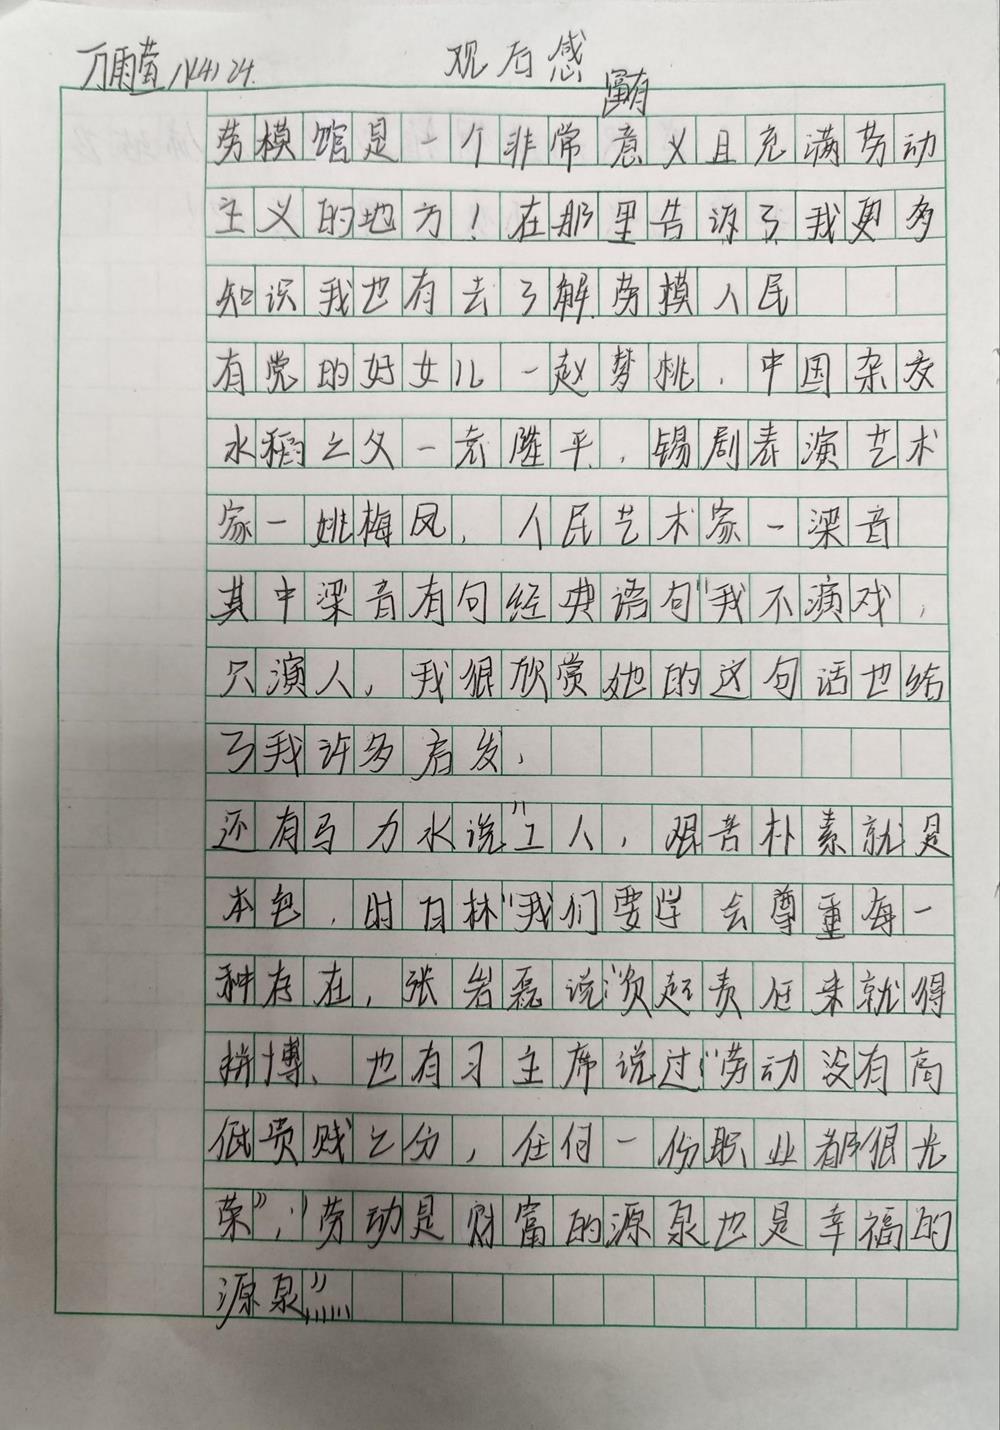 万雨萤 八(4) 24.
观后感
富有
劳模馆是一个非常意义且充满劳动
主义的地方！在那里告诉了我更多
知识我也有去了解劳模人民
有党的好女儿一赵梦桃，中国杂交
水稻之父一袁隆平，锡剧表演艺术
家一姚梅凤，人民艺术家一梁音
其中梁音有句经典语句"我不演戏，
只演人，我很欣赏她的这句话也给
了我许多启发，
还有马力水说"工人，艰苦朴素就是
本色，时百林"我们要学会尊重每一
种存在，张岩磊说"负起责任来就得
拼博、也有习主席说过"劳动没有高
低贵贱之分，任何一份职业都很光
荣"，"劳动是财富的源泉也是幸福的
源泉"……